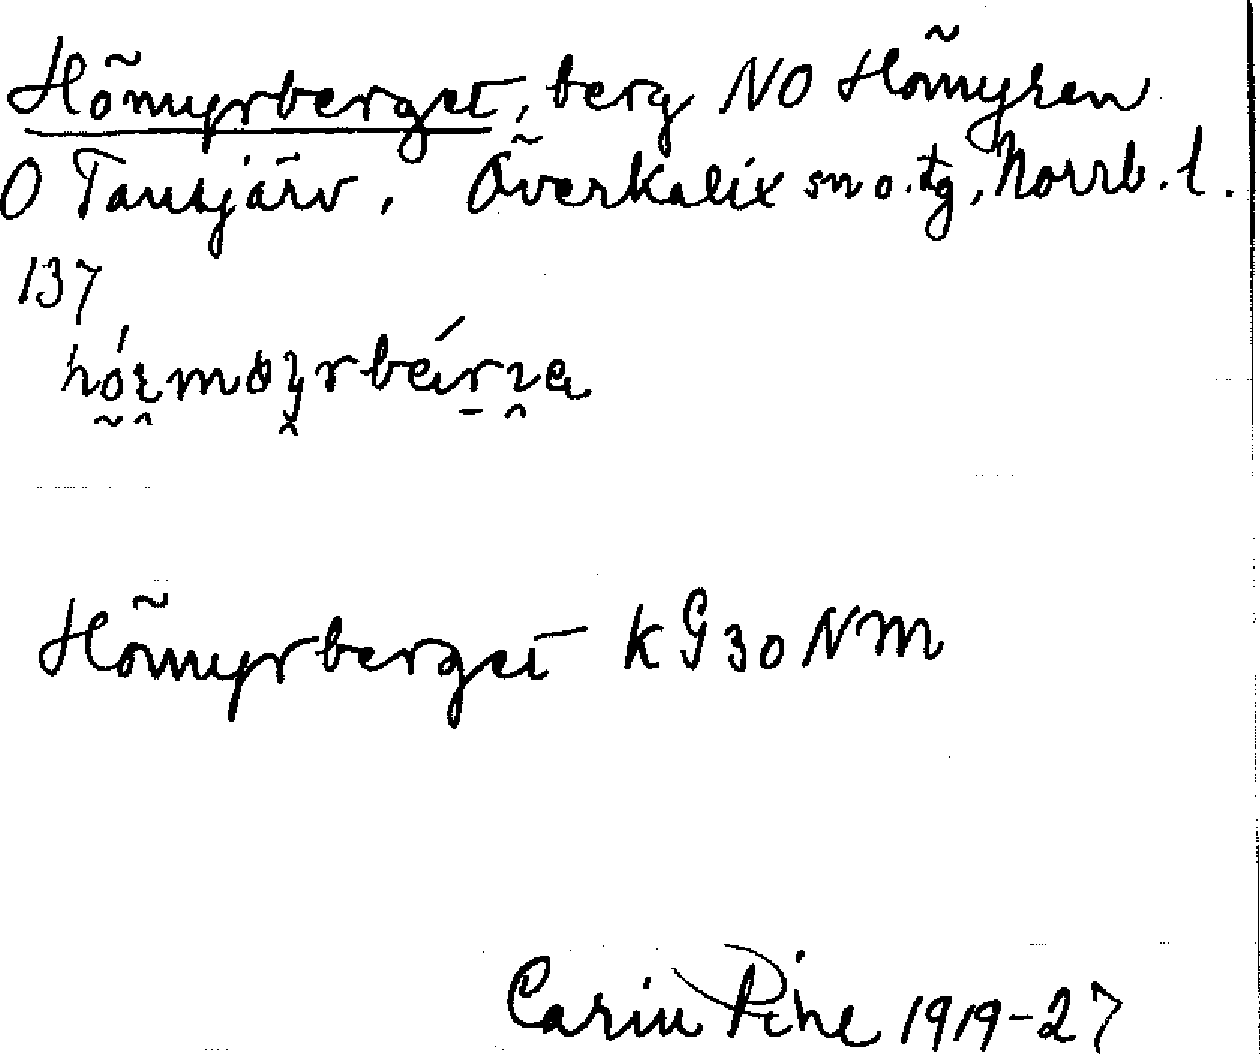 Hömyrberget, berg NO Hömyren
O Tansjärv, Överkalix sn o. tg, Norrb. l.
137
Hömyrberget KG 30 NM
Carin Pihl 1919-27